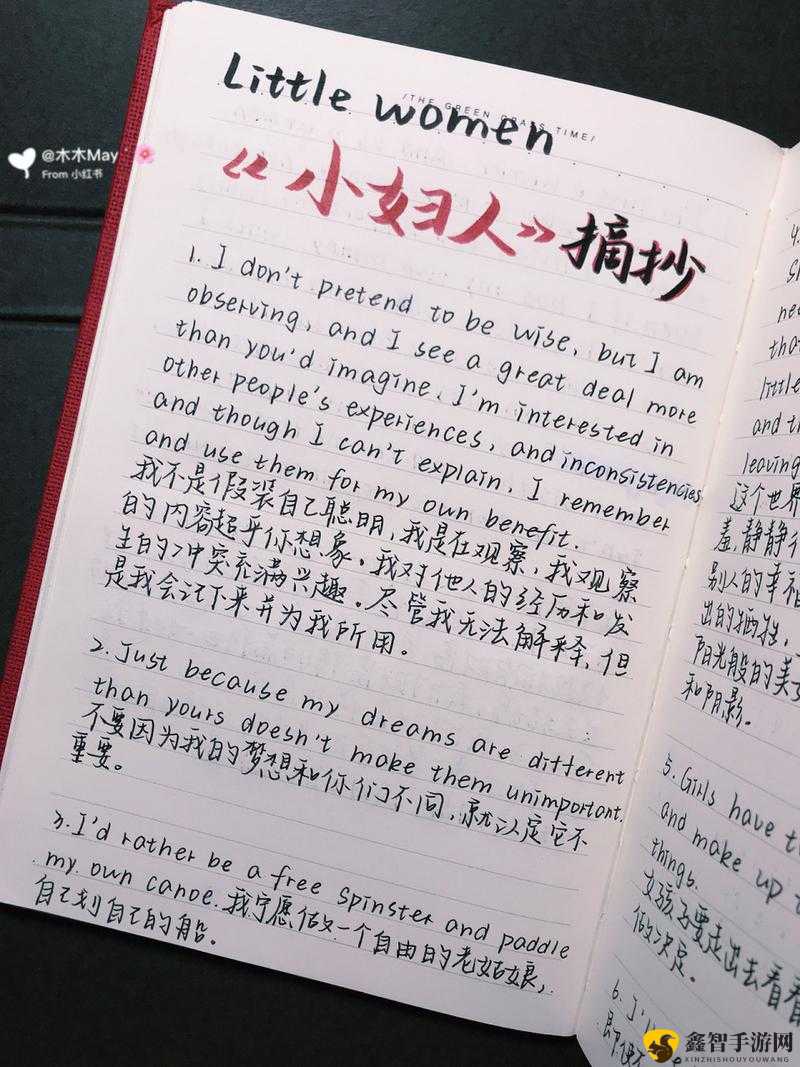 Little women
/THE GREEN GRASS TIME/
@木木May
From 小红书
《小妇人》摘抄
1. I don't pretend to be wise, but I am
observing, and I see a great deal more
than you'd imagine. I'm interested in
other people's experiences, and inconsistencies,
and though I can't explain, I remember
and use them for my own benefit.
我不是假装自己聪明,我是在观察,我观察
的内容超乎你想象,我对他人的经历和发
生的冲突充满兴趣。尽管我无法解释,但
是我会记下来并为我所用。
2. Just because my dreams are different
than yours doesn't make them unimportant.
不要因为我的梦想和你们不同,就认定它不
重要。
3. I'd rather be a free spinster and paddle
my own canoe. 我宁愿做一个自由的老姑娘,
自己划自己的船。
4.
little
and th
leaving
这个世界
羞,静静
别人的幸福
出的牺牲,
阳光般的美
和阴影。
5. Girls have t
and make up
things.
女孩子要走出去看看
做决定。
6. I'
鑫智手游网
XINZHISHOUYOUWANG